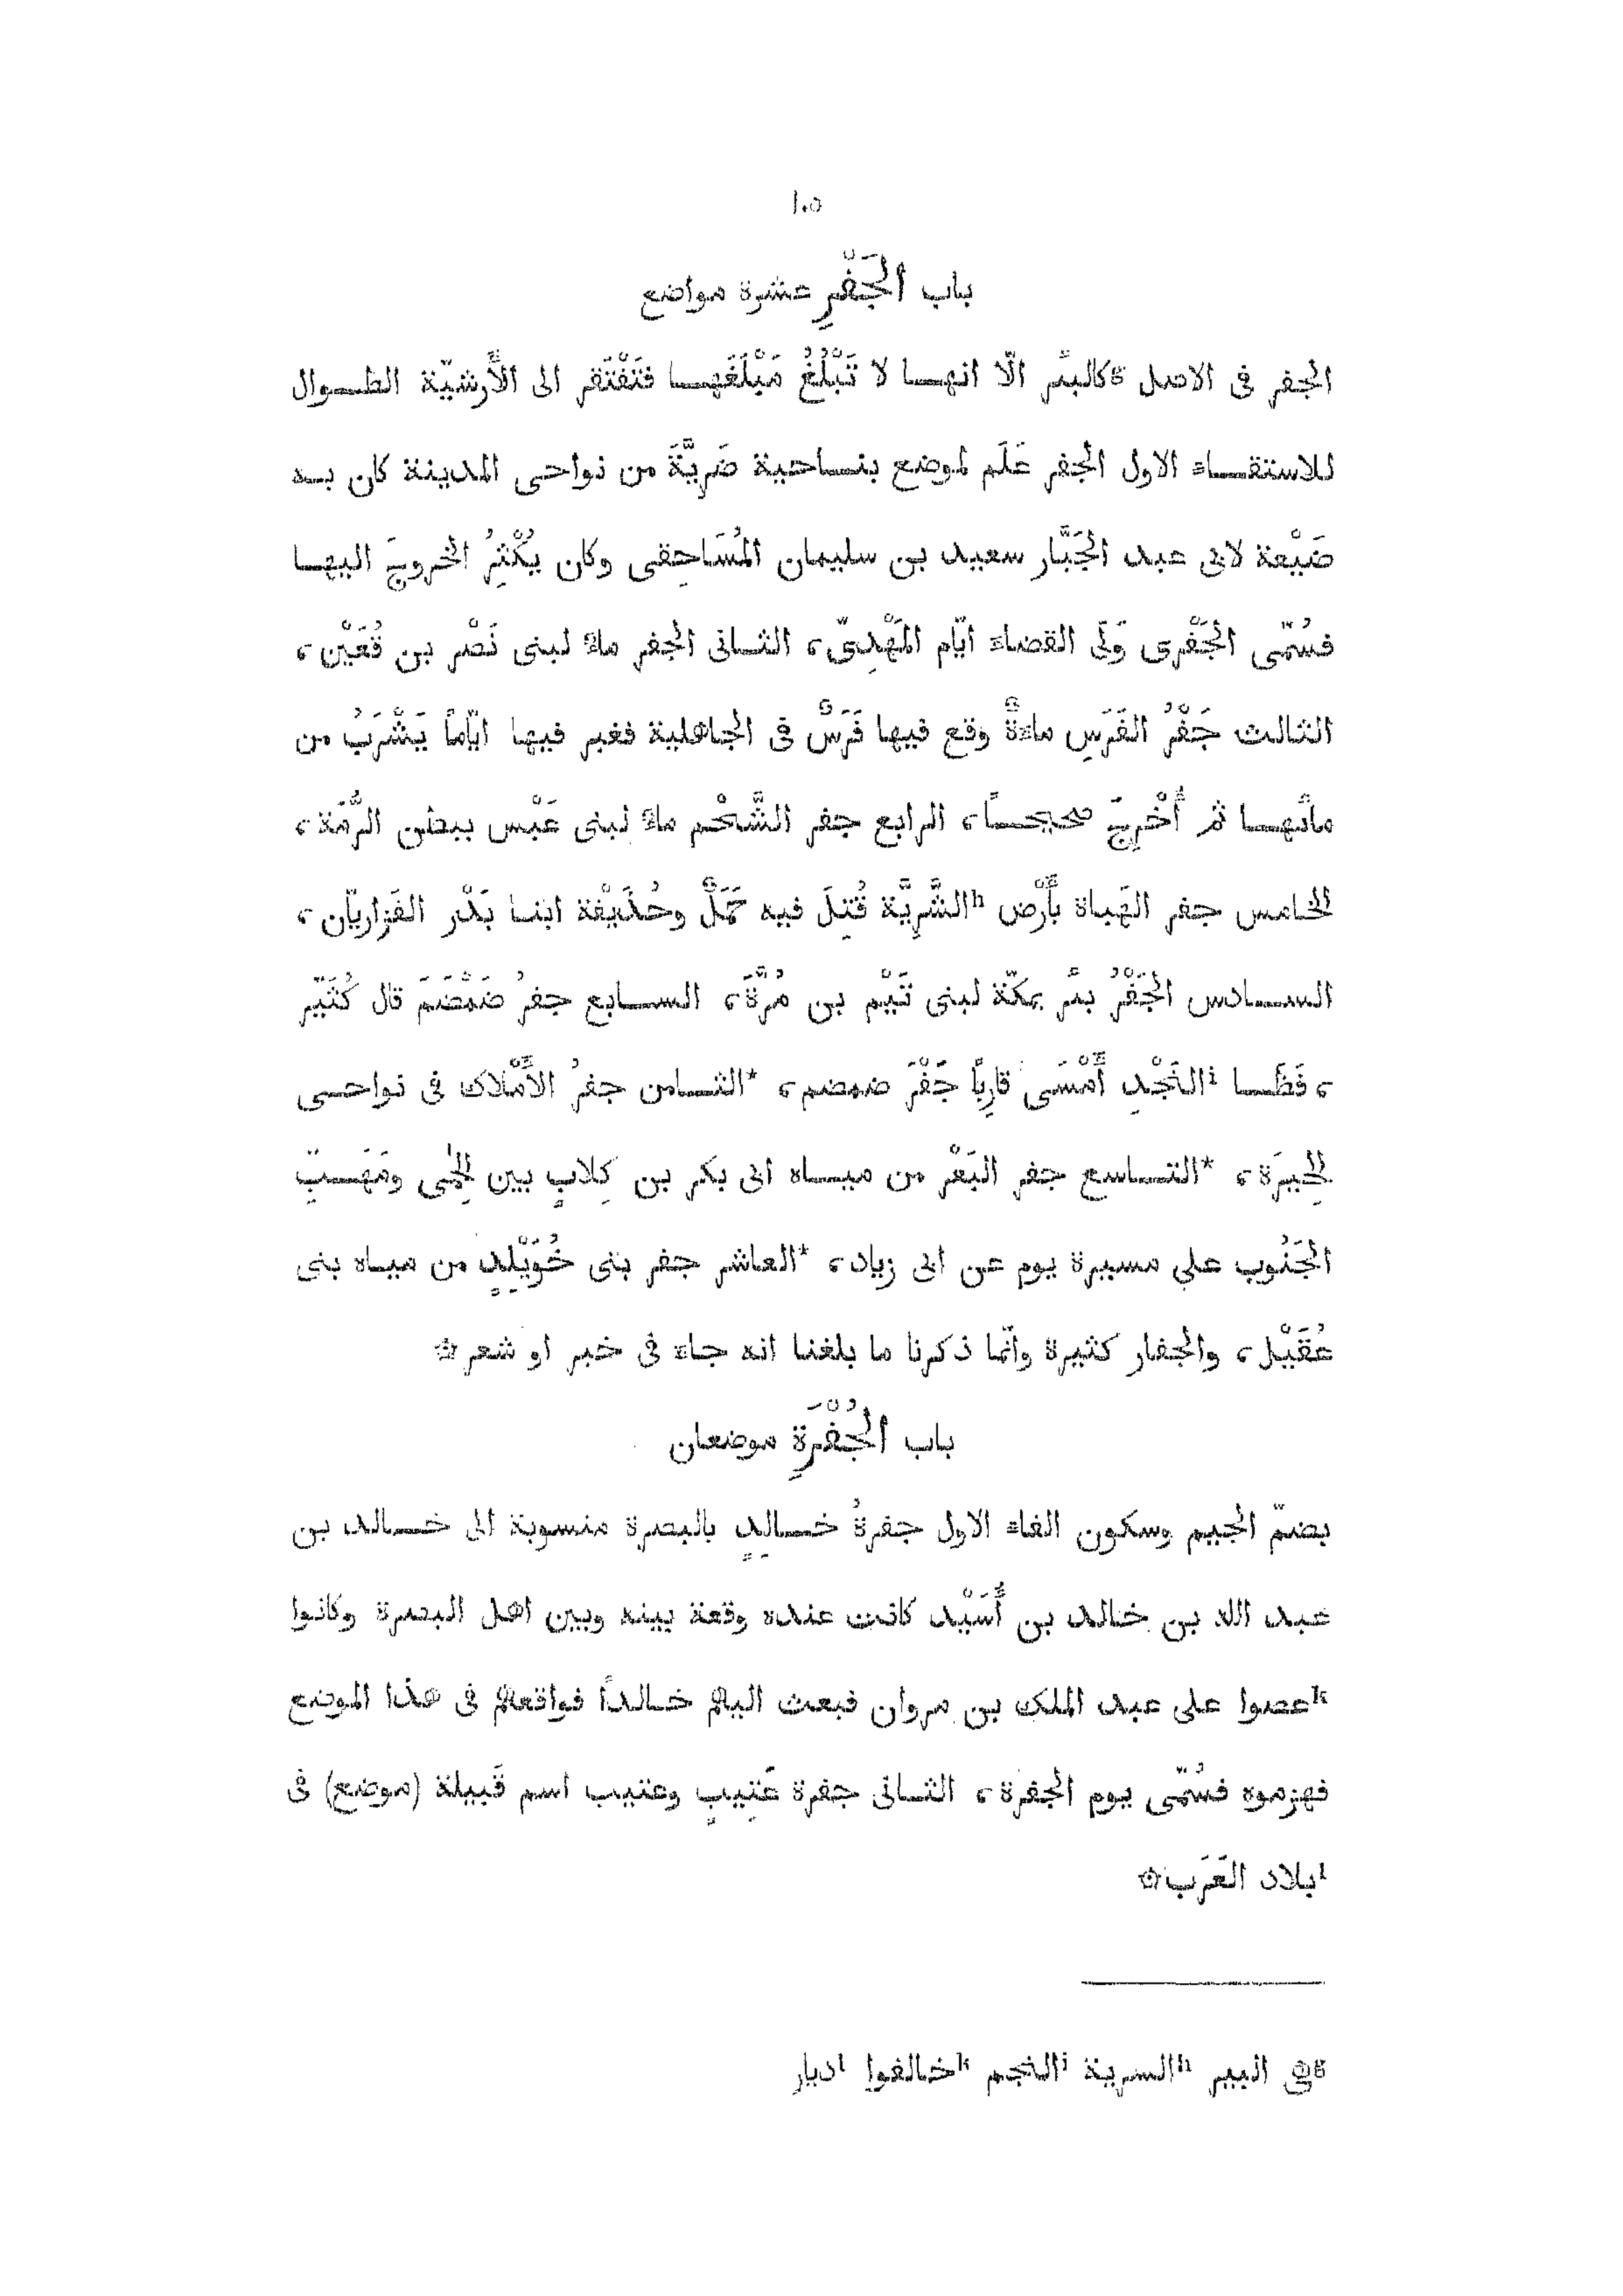 ١٠٥
باب الجَفْرِ عشرة مواضع
الجفر فى الاصل gكالبئر الّا انهـا لا تَبْلُغُ مَبْلَغَهـا فتَفْتَقر الى الأَرشيّة الطـوال
للاستقـاء الاول الجفر عَلَم لموضع بنـاحية ضَرِيَّةَ من نواحى المدينة كان بـه
ضَيْعة لابى عبد الجَبَّار سعيد بن سليمان المُسَاحِقى وكان يُكْثِرُ الخروجَ اليهـا
فسُمّى الجَفْرى وَلَى القضاء ايّام المَهْدِىّ، الثـانى الجفر ماء لبنى نَصْر بن قُعَيْن،
الثالث جَفْرُ الفَرَسِ ماءةٌ وقع فيها فَرَسٌ فى الجاهلية فغبر فيها ايّاماً يَشْرَبُ من
مائهـا ثم أُخْرِجَ صحيحـاً، الرابع جفر الشَّحْم ماء لبنى عَبْس ببطن الرُّمّة،
الخامس جفر الهَباة بأَرْض hالشَّرِيَّة قُتِلَ فيه حَمَلٌ وحُذَيْفة ابنـا بَدْر الفَزاريّان،
السـادس الجَفْرُ بئر بمكّة لبنى تَيْم بن مُرَّة، السـابع جفرُ ضَمْضَمَ قال كُثَيّر
، فَظَـا iالنَجْدِ أَمْسَى قارِبًا جَفْرَ ضمضم، *الثـامن جفرُ الأَمْلاك فى نواحـى
الحِيرَة، *التـاسع جفر البَعْر من ميـاه ابى بكر بن كِلابٍ بين الحِمَى ومَهَـبِّ
الجَنُوب على مسيرة يوم عن ابى زياد، *العاشر جفر بنى خُوَيْلِدٍ من ميـاه بنى
عُقَيْل، والجفار كثيرة وانّما ذكرنا ما بلغنا انه جاء فى خبر او شعر ۞
باب الجُفْرَةِ موضعان
بضمّ الجيم وسكون الفاء الاول جفرةُ خـالِدٍ بالبصرة منسوبة الى خـالد بن
عبد الله بن خالد بن أَسَيْد كانت عنده وقعة بينه وبين اهل البصرة وكانوا
kعصوا على عبد الملك بن مروان فبعث اليهم خـالداً فواقعهم فى هذا الموضع
فهزموه فسُمّى يوم الجفرة، الثـانى جفرة عَتِيبٍ وعتيب اسم قَبيلة (موضع) فى
lبلاد العَرَب ۞
gهى البير hالسرية iالنجم kخالفوا lديار